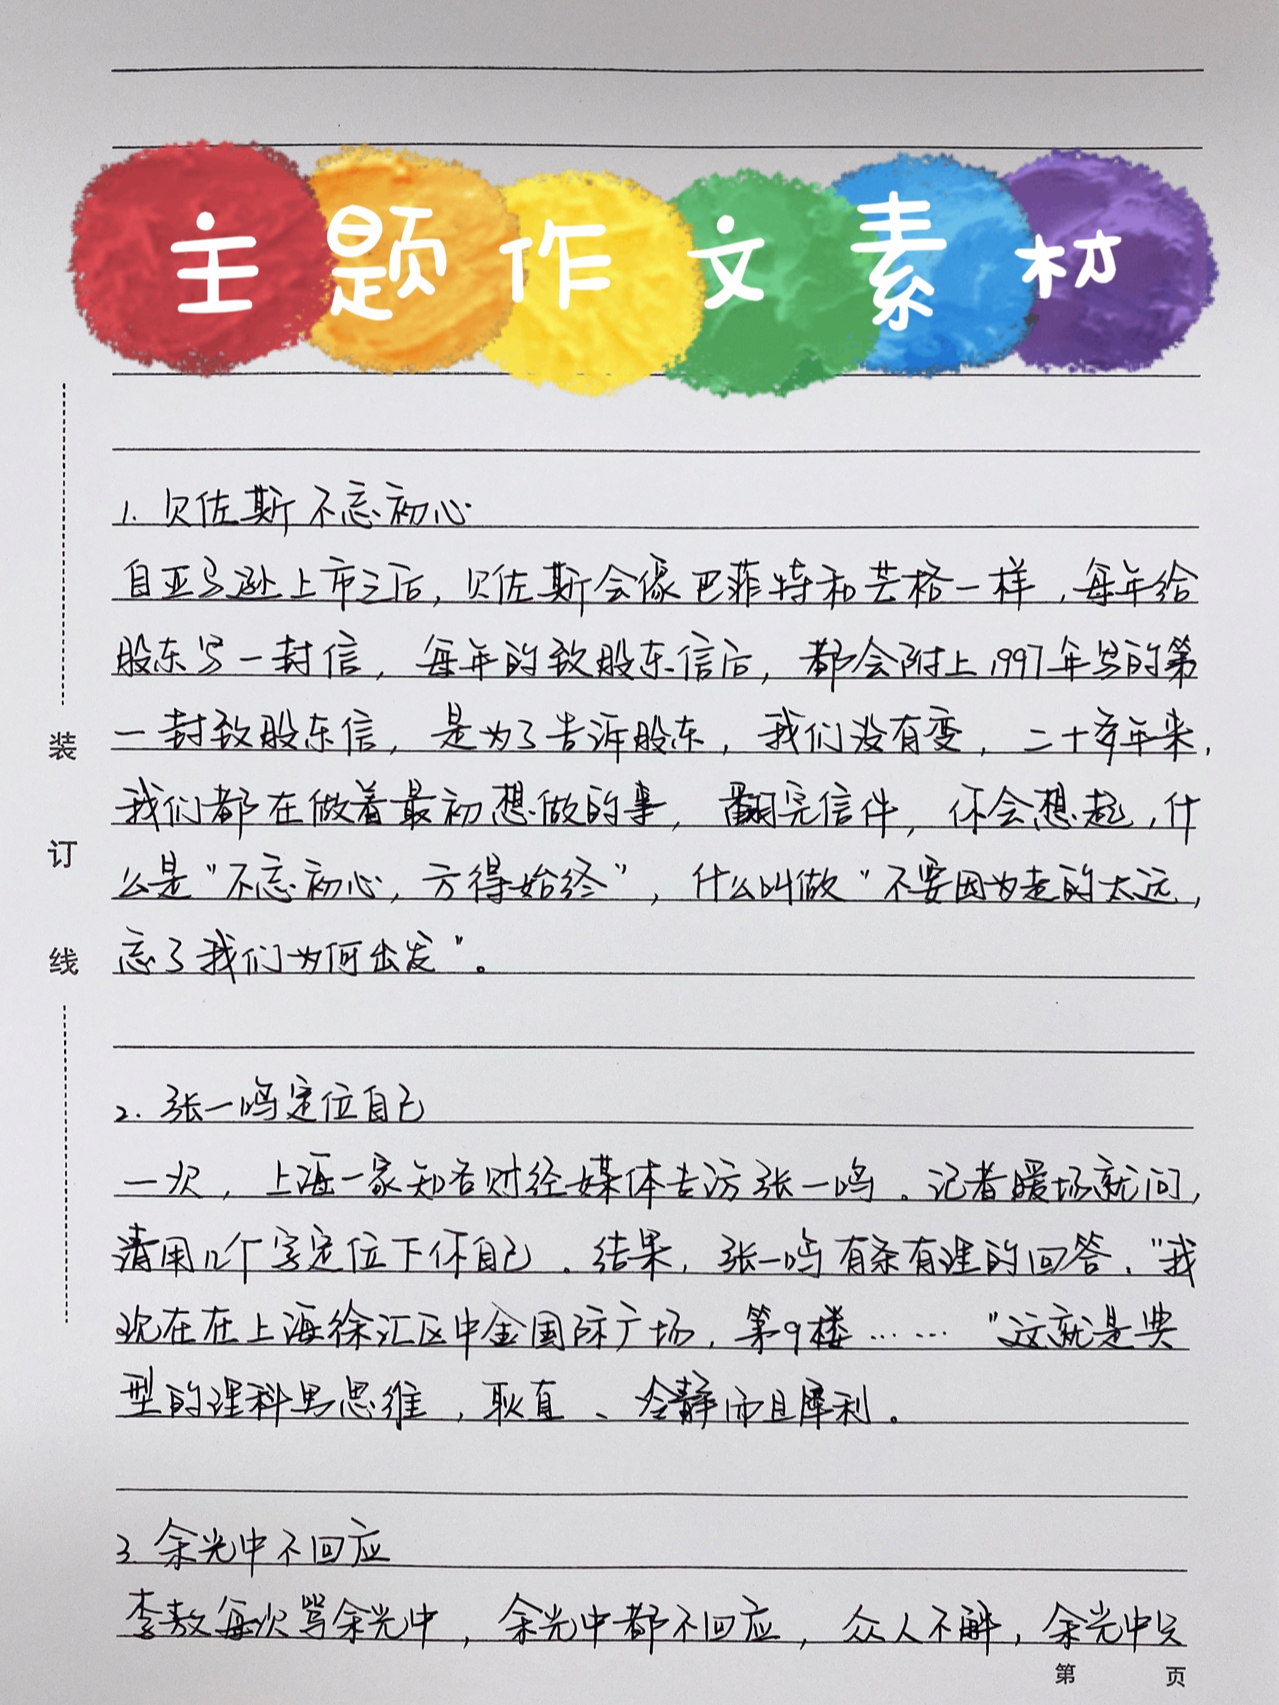 主题作文素材
1. 贝佐斯不忘初心
自亚马逊上市之后，贝佐斯会像巴菲特和芒格一样，每年给
股东写一封信，每年的致股东信后，都会附上1997年写的第
一封致股东信，是为了告诉股东，我们没有变，二十多年来，
我们都在做着最初想做的事，翻完信件，你会想起，什
么是“不忘初心，方得始终”，什么叫做“不要因为走的太远，
忘了我们为何出发”。
装
订
线
2. 张一鸣定位自己
一次，上海一家知名财经媒体去访张一鸣。记者暖场就问，
请用几个字定位下你自己。结果，张一鸣有条有理的回答，“我
现在在上海徐汇区中金国际广场，第9楼……”这就是典
型的理科男思维，耿直、冷静而且犀利。
3. 余光中不回应
李敖每次骂余光中，余光中都不回应，众人不解，余光中只
第 页